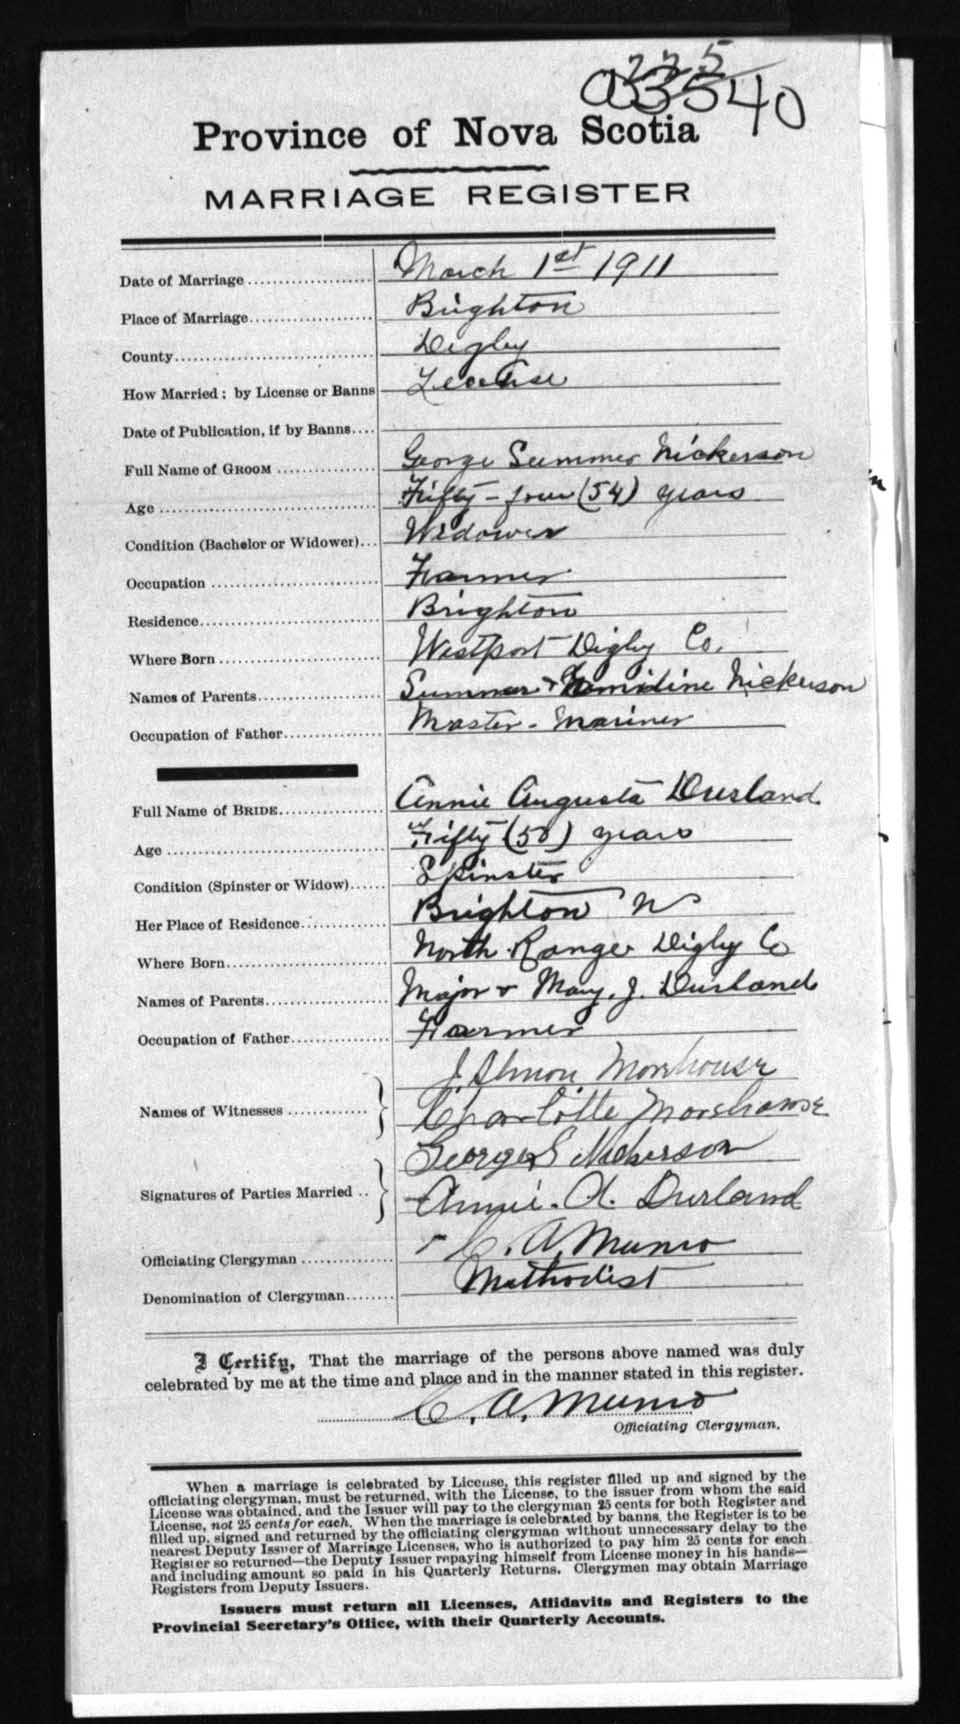 225
a3540
Province of Nova Scotia
MARRIAGE REGISTER
Date of Marriage .................... March 1st 1911
Place of Marriage .................... Brighton
County .................... Digby
How Married; by License or Banns License
Date of Publication, if by Banns....
Full Name of GROOM .................... George Sumner Nickerson
Age .................... Fifty-four (54) years
Condition (Bachelor or Widower)... Widower
Occupation .................... Farmer
Residence .................... Brighton
Where Born .................... Westport Digby Co.
Names of Parents .................... Sumner & Nickerson
Occupation of Father .................... Master-Mariner
Full Name of BRIDE .................... Annie Augusta Durland
Age .................... Fifty (50) years
Condition (Spinster or Widow)...... Spinster
Her Place of Residence .................... Brighton NS
Where Born .................... North Range Digby Co
Names of Parents .................... Major & Mary. J. Durland
Occupation of Father .................... Farmer
J. Almon Morehouse
Names of Witnesses .................... Charlotte Morehouse
George S Nickerson
Signatures of Parties Married .. Annie. A. Durland
Officiating Clergyman .................... C. A. Munro
Denomination of Clergyman ........ Methodist
I Certify, That the marriage of the persons above named was duly
celebrated by me at the time and place and in the manner stated in this register.
C. A. Munro
Officiating Clergyman.
When a marriage is celebrated by License, this register filled up and signed by the
officiating clergyman, must be returned, with the License, to the issuer from whom the said
License was obtained, and the Issuer will pay to the clergyman 25 cents for both Register and
License, not 25 cents for each. When the marriage is celebrated by banns, the Register is to be
filled up, signed and returned by the officiating clergyman without unnecessary delay to the
nearest Deputy Issuer of Marriage Licenses, who is authorized to pay him 25 cents for each
Register so returned—the Deputy Issuer repaying himself from License money in his hands—
and including amount so paid in his Quarterly Returns. Clergymen may obtain Marriage
Registers from Deputy Issuers.
Issuers must return all Licenses, Affidavits and Registers to the
Provincial Secretary's Office, with their Quarterly Accounts.